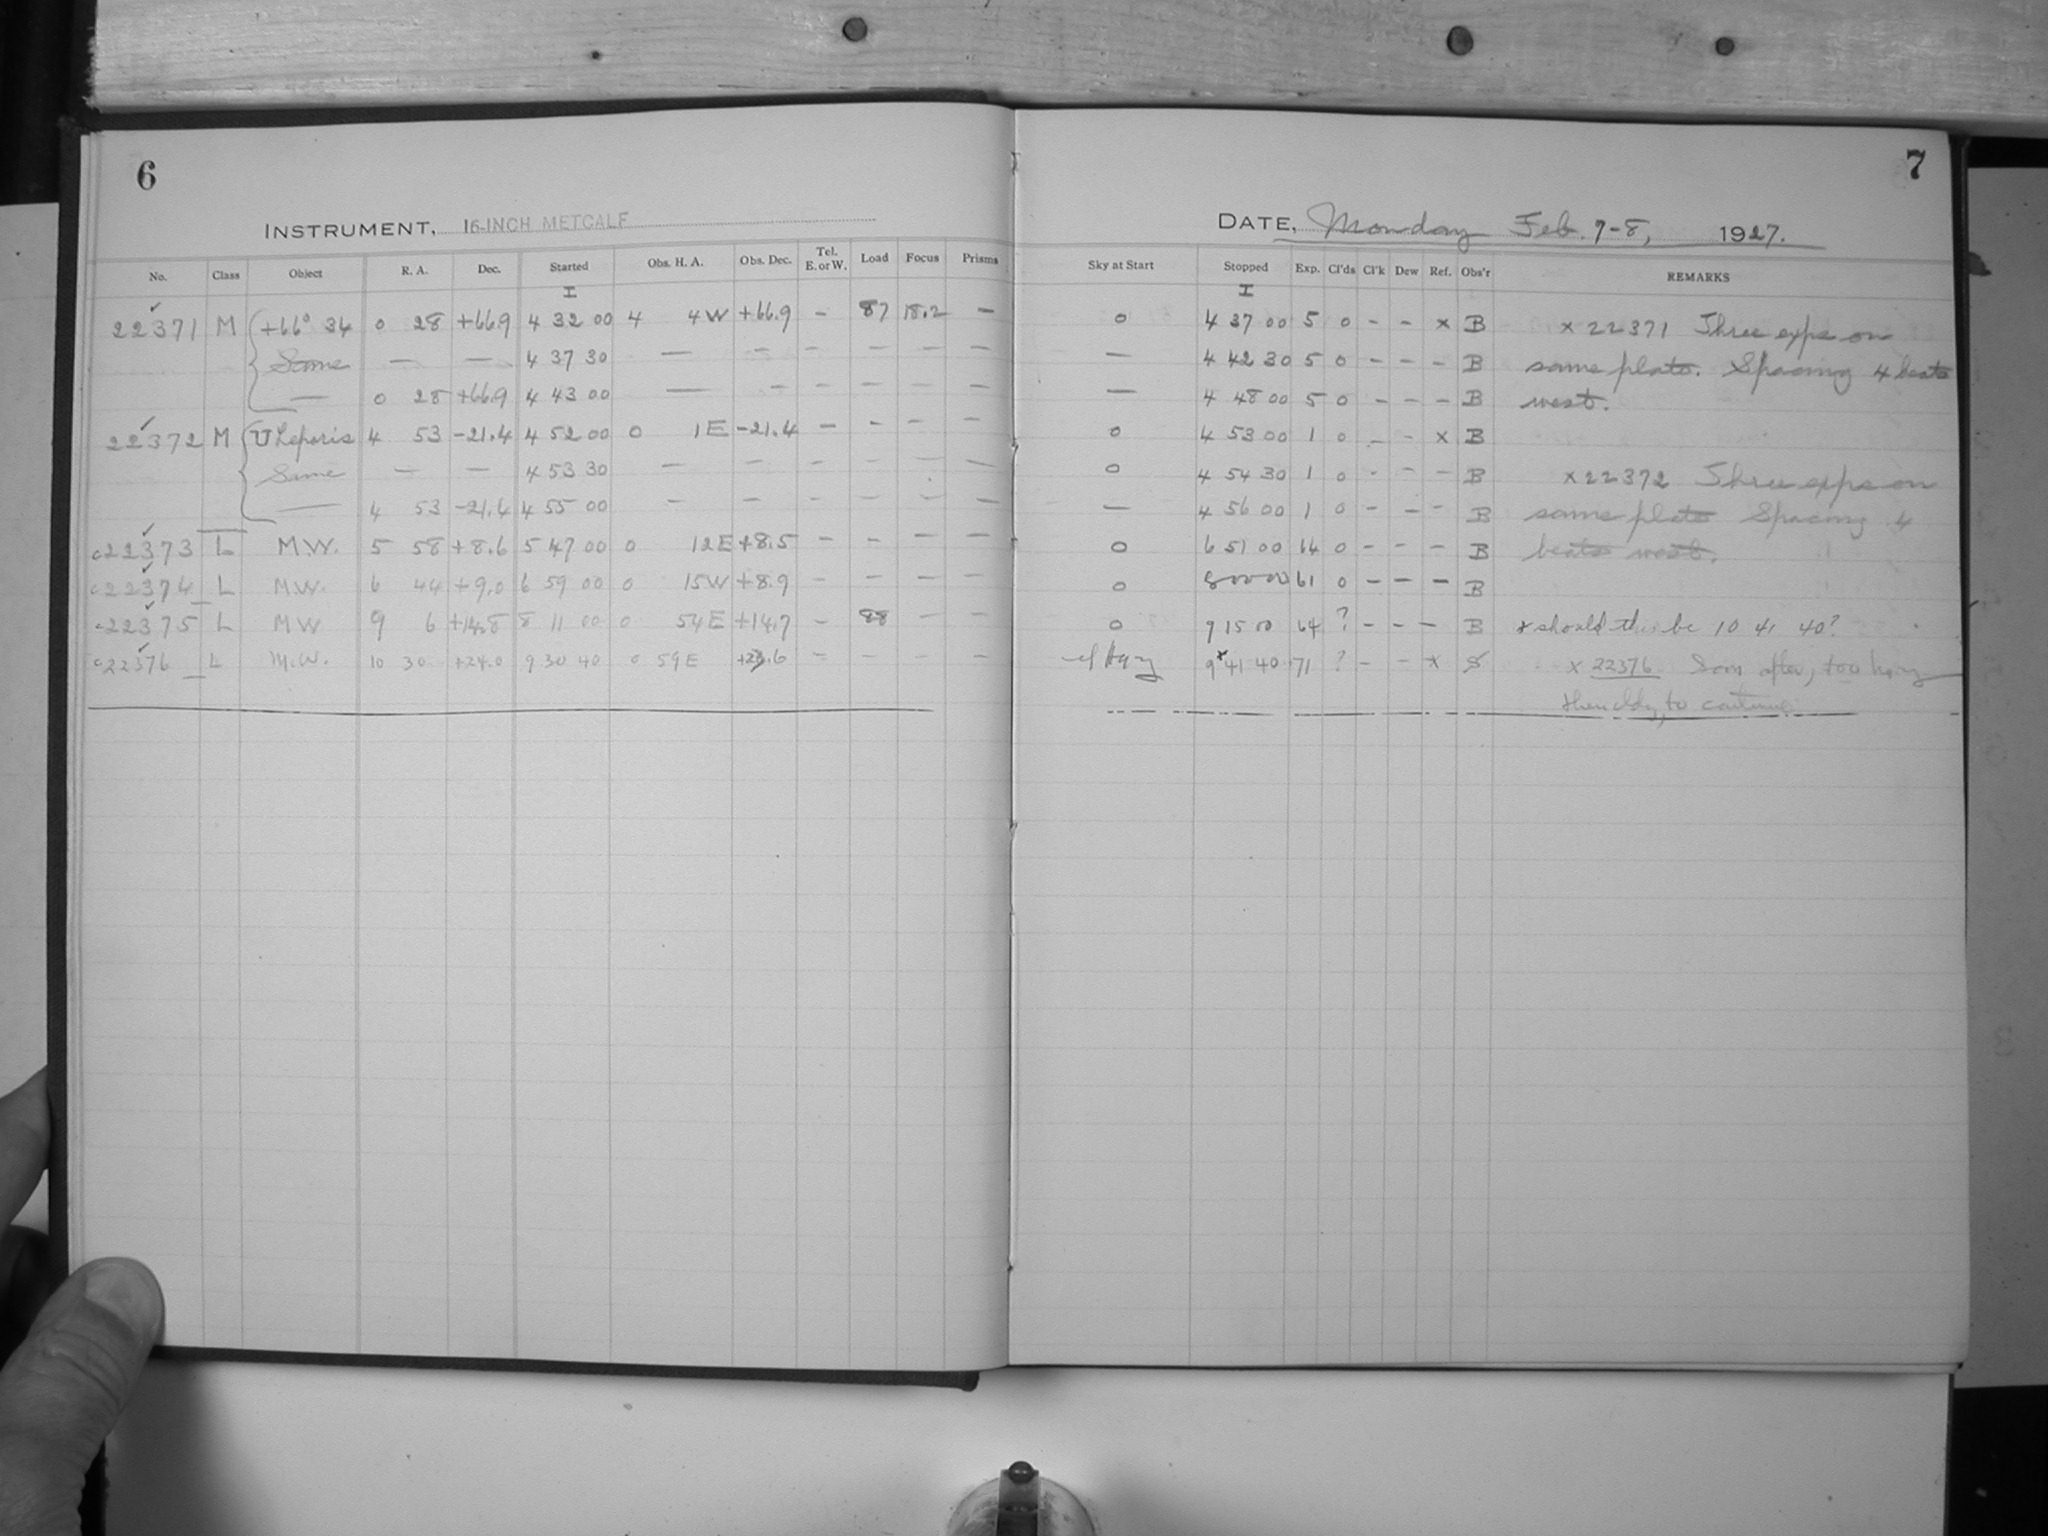 6
INSTRUMENT, 16-INCH METCALF
No. Class Object R. A. Dec. Started Obs. H. A. Obs. Dec. Tel. E. or W. Load Focus Prisms
I
22371 M +66° 34 0 28 +66.9 4 32 00 4 4W +66.9 – 87 18.2 –
Same — — 4 37 30 — – – – – –
— 0 28 +66.9 4 43 00 — – – – – –
22372 M U Leporis 4 53 -21.4 4 52 00 0 1E -21.4 – – – –
Same — — 4 53 30 — – – – – –
— 4 53 -21.4 4 55 00 – – – – – –
c22373 L M W. 5 58 +8.6 5 47 00 0 12E +8.5 – – – –
c22374 L M.W. 6 44 +9.0 6 59 00 0 15W +8.9 – – – –
c22375 L M W 9 6 +14.8 8 11 00 0 54E +14.7 – 88 – –
c22376 L M.W. 10 30 +24.0 9 30 40 0 59E +23.6 – – – –
7
DATE, Monday Feb. 7-8, 1927.
Sky at Start Stopped Exp. Cl'ds Cl'k Dew Ref. Obs'r REMARKS
I
0 4 37 00 5 0 – – x B x 22371 Three exps on
— 4 42 30 5 0 – – – B same plate. Spacing 4 beats
— 4 48 00 5 0 – – – B west.
0 4 53 00 1 0 – – x B
0 4 54 30 1 0 – – – B x22372 Three exps on
— 4 56 00 1 0 – – – B same plate Spacing 4
0 6 51 00 64 0 – – – B beats west.
0 8 00 00 61 0 – – – B
0 9 15 00 64 ? – – – B x should this be 10 41 40?
Hazy 9 x 41 40 71 ? – – x S x 22376. Soon after, too hazy
then cldy, to continue